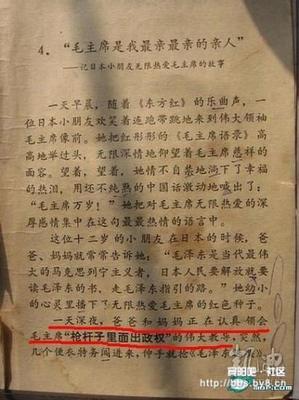 4.“毛主席是我最亲最亲的亲人”
——记日本小朋友无限热爱毛主席的故事
一天早晨，随着《东方红》的乐曲声，一
位日本小朋友欢笑着连地带跳地来到伟大领袖
毛主席像前。她把红彤彤的《毛主席语录》高
高地举过头，无限深情地仰望着毛主席慈祥的
面容。望着，望着，她情不自禁地淌下了幸福
的热泪，用还不纯熟的中国话激动地喊出了：
“毛主席万岁！”她把对毛主席无限热爱的深
厚感情集中在这句最最热情的语言中。
这位十二岁的小朋友在日本的时候，爸
爸、妈妈就常常告诉她：“毛泽东是当代最伟
大的马克思列宁主义者，日本人民要解放就要
读毛泽东的书，走毛泽东指引的路。”她幼小
的心灵里播下了无限热爱毛主席的红色种子。
一天深夜，爸爸和妈妈正在认真领会
毛主席“枪杆子里面出政权”的伟大教导，突然，
几个便衣特务闯进来，伸手就抢《毛泽东
http://bbs.by8.cn